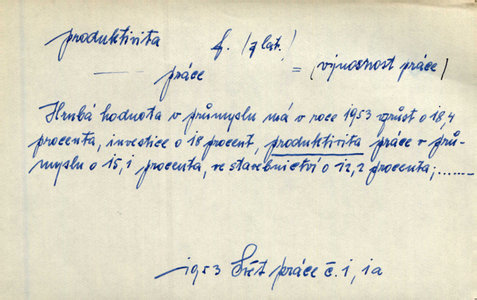 produktivita f. /z lat./
— práce = /výnosnost práce/
Hrubá hodnota v průmyslu má v roce 1953 vzrůst o 18,4
procenta, investice o 18 procent, produktivita práce v prů-
myslu o 15,1 procenta, ve stavebnictví o 12,2 procenta;.......
1953 Svět práce č. 1, 1a